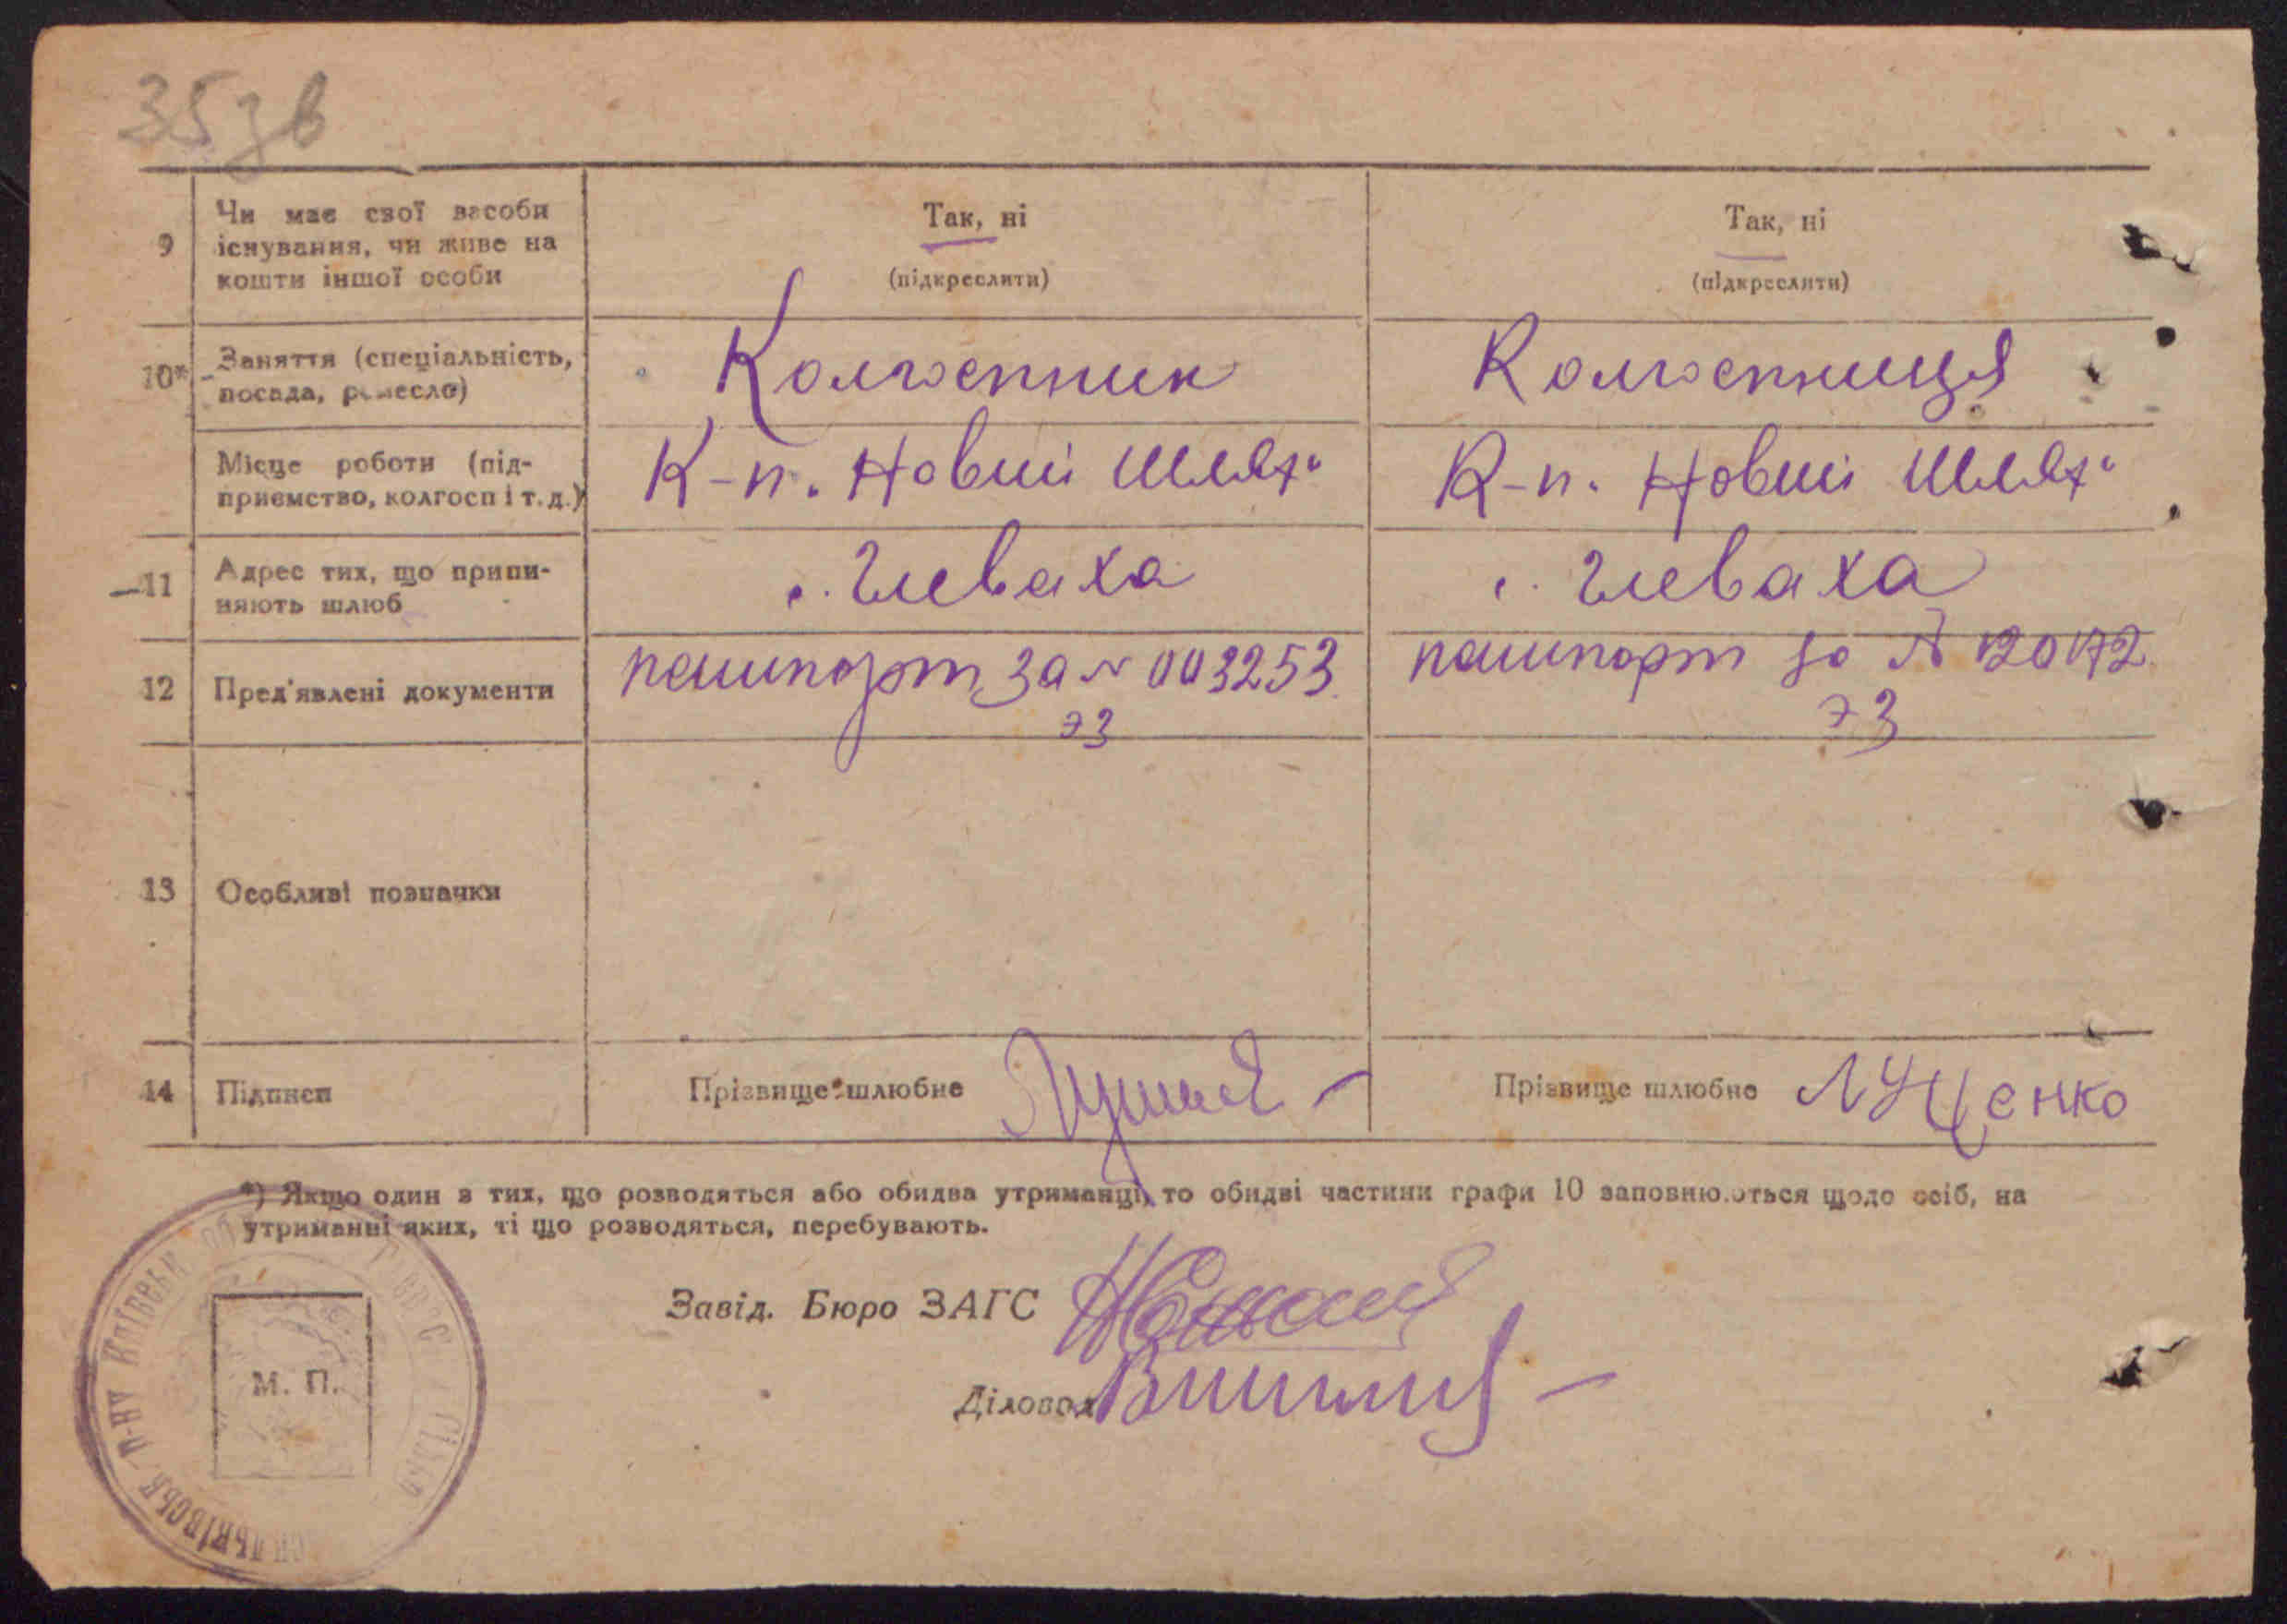 35 зв
9 Чи має свої засоби існування, чи живе на кошти іншої особи
Так, ні
(підкреслити)
Так, ні
(підкреслити)
10* Заняття (спеціальність, посада, ремесло)
Колгоспник
Колгоспниця
Місце роботи (підприємство, колгосп і т. д.)
К-п. Новий Шлях"
К-п. Новий Шлях"
11 Адрес тих, що припиняють шлюб
с. Глеваха
с. Глеваха
12 Пред'явлені документи
пашпорт за № 003253
ЭЗ
пашпорт за № 12072
ЭЗ
13 Особливі позначки
14 Підписи
Прізвище шлюбне
Прізвище шлюбне Луценко
*) Якщо один з тих, що розводяться або обидва утриманці, то обидві частини графи 10 заповнюються щодо осіб, на
утриманні яких, ті що розводяться, перебувають.
Завід. Бюро ЗАГС
Діловод
М. П.